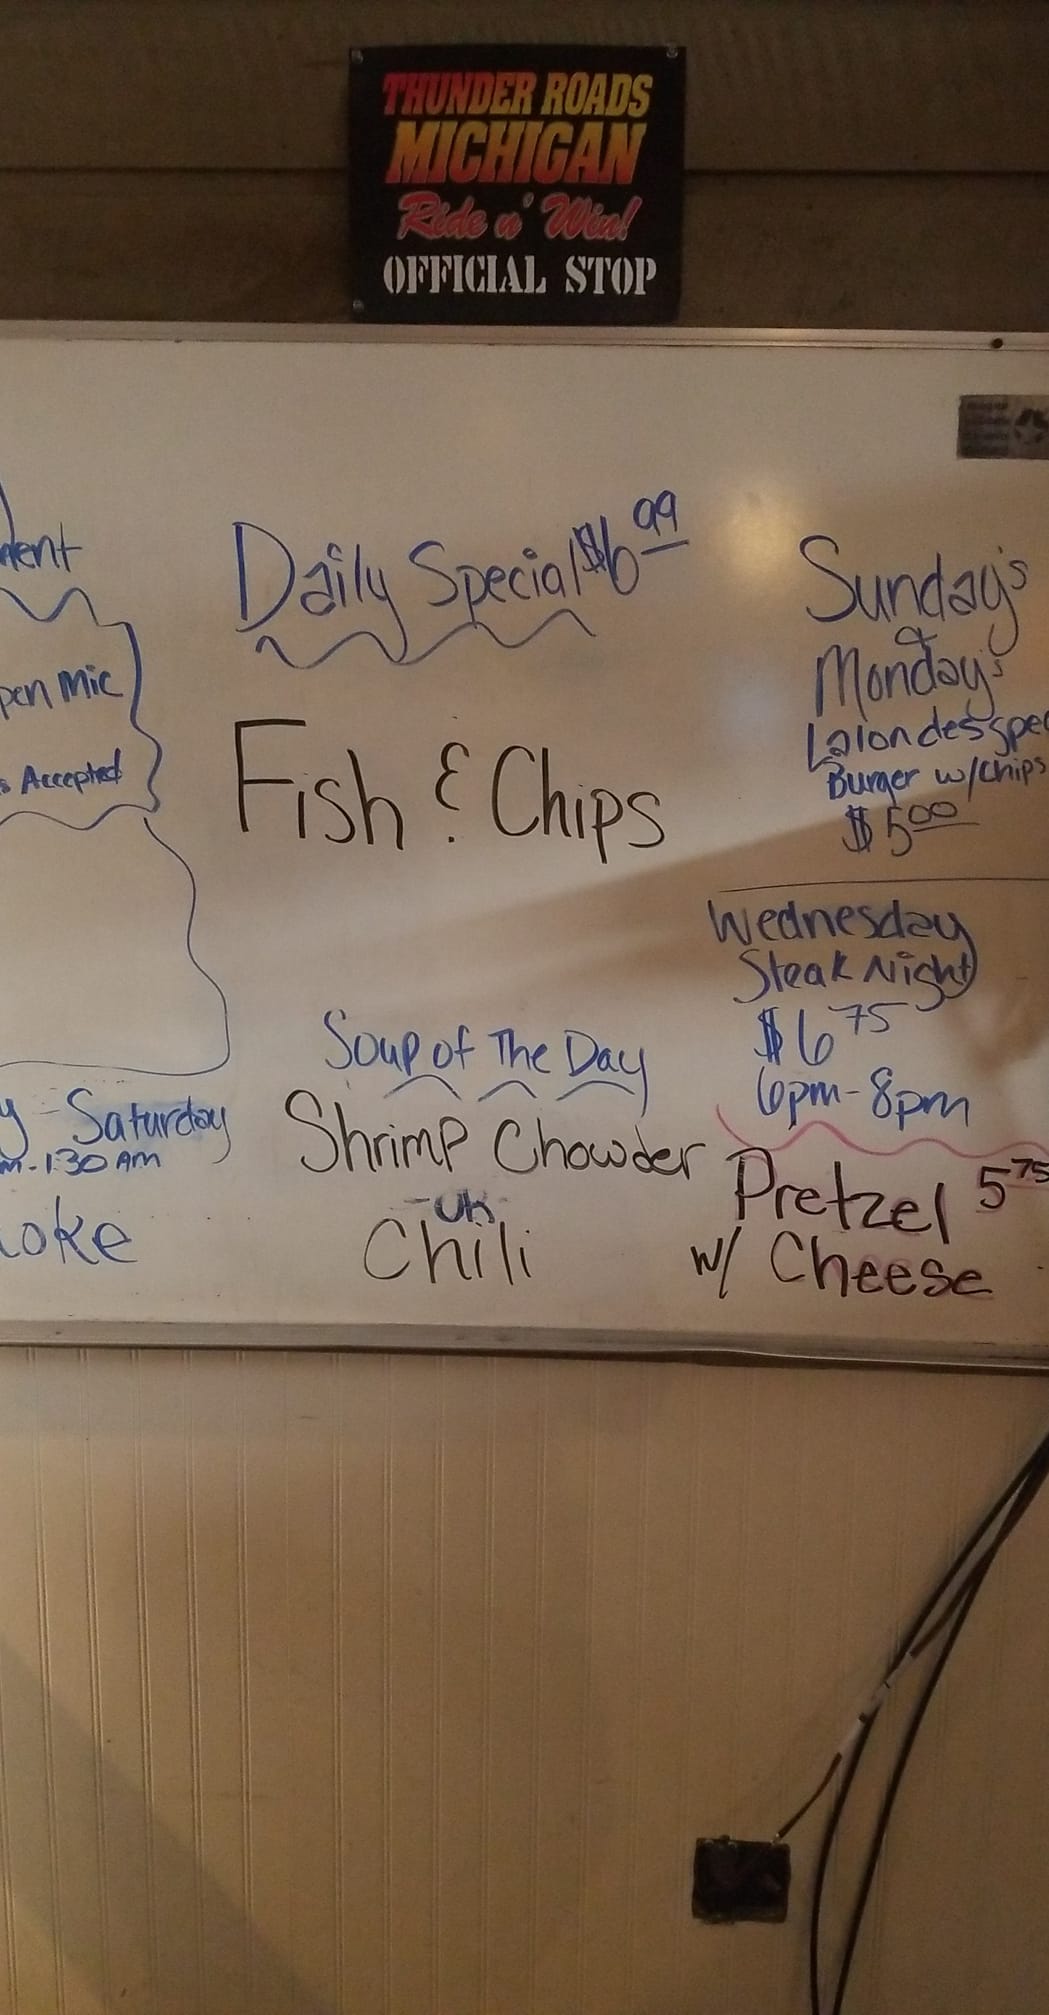 THUNDER ROADS
MICHIGAN
Ride n' Win!
OFFICIAL STOP
dent
pen Mic
s Accepted
y - Saturday
m-1:30 AM
oke
Daily Special $6 99
Fish & Chips
Soup of The Day
Shrimp Chowder
Chili
Sunday's
&
Monday's
Lalondes Spec
Burger w/chips
$5 00
Wednesday
Steak Night
$6 75
6pm-8pm
Pretzel 5 75
w/ Cheese